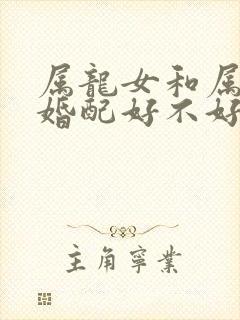 属龍女和属
婚配好不好
主角寧業